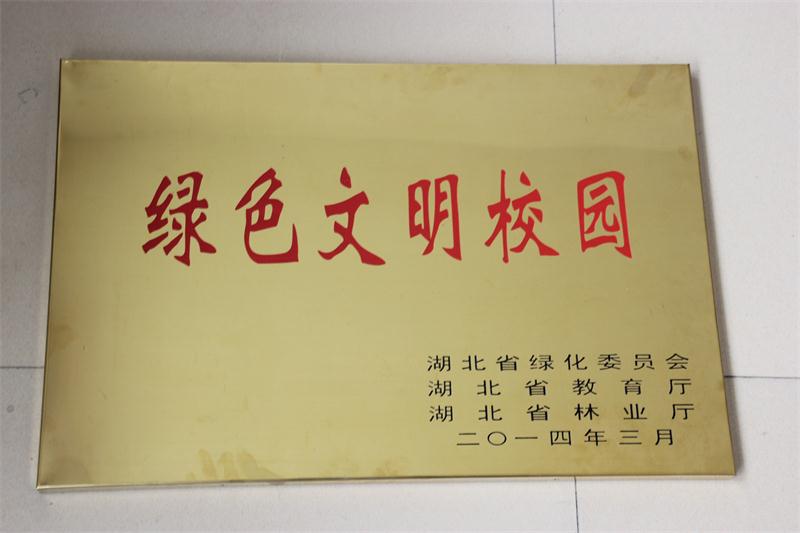 绿色文明校园
湖北省绿化委员会
湖北省教育厅
湖北省林业厅
二〇一四年三月